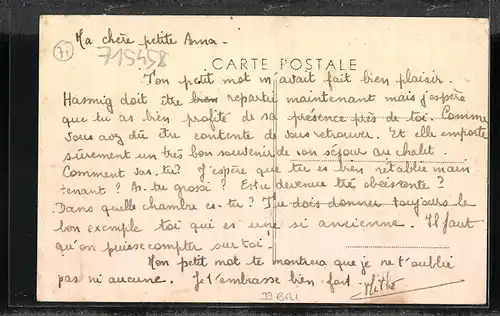 Ma chère petite Anna -
71
715458
CARTE POSTALE
Ton petit mot m'avait fait bien plaisir.
Hasmig doit être bien repartie maintenant mais j'espère
que tu as bien profité de sa présence près de toi. Comme
vous avez dû être contente de vous retrouver. Et elle emporte
sûrement un très bon souvenir de son séjour au chalet.
Comment vas-tu? J'espère que tu es bien rétablie main
tenant? As-tu grossi? Es-tu devenue très obéissante?
Dans quelle chambre es-tu? Tu dois donner toujours le
bon exemple toi qui es une si ancienne. Il faut
qu'on puisse compter sur toi -
Mon petit mot te montrera que je ne t'oublie
pas ni aucune. Je t'embrasse bien fort.